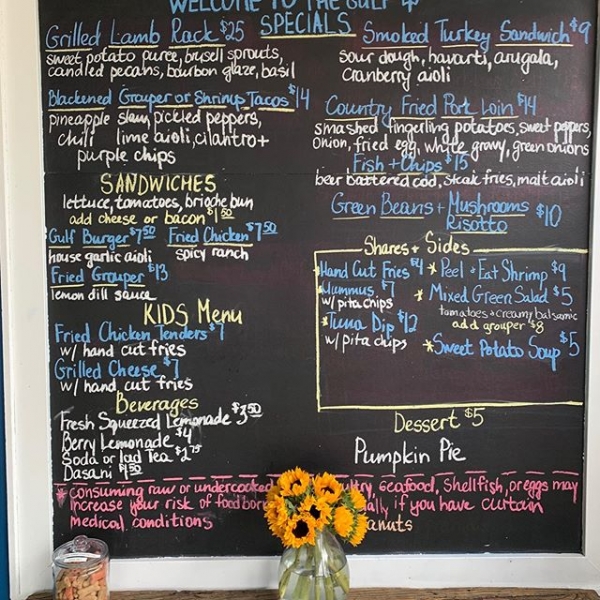 WELCOME TO THE GULF
SPECIALS
Grilled Lamb Rack $25
sweet potato puree, brusell sprouts,
candied pecans, bourbon glaze, basil
Blackened Grouper or Shrimp Tacos $14
pineapple slaw, pickled peppers,
chili lime aioli, cilantro +
purple chips
Smoked Turkey Sandwich $9
sour dough, havarti, arugala,
cranberry aioli
Country Fried Pork Loin $14
smashed fingerling potatoes, sweet peppers,
onion, fried egg, white gravy, green onions
Fish + Chips $15
beer battered cod, steak fries, malt aioli
Green Beans + Mushrooms
Risotto $10
SANDWICHES
lettuce, tomatoes, brioche bun
add cheese or bacon $1.50
Gulf Burger $7.50 Fried Chicken $7.50
house garlic aioli spicy ranch
Fried Grouper $13
lemon dill sauce
KIDS Menu
Fried Chicken Tenders $7
w/ hand cut fries
Grilled Cheese $7
w/ hand cut fries
Beverages
Fresh Squeezed Lemonade $3.50
Berry Lemonade $4
Soda or Iced Tea $2.75
Dasani $1.50
Shares + Sides
Hand Cut Fries $4
*Hummus $7
w/ pita chips
*Tuna Dip $12
w/ pita chips
* Peel + Eat Shrimp $9
* Mixed Green Salad $5
tomatoes + creamy balsamic
add grouper $8
*Sweet Potato Soup $5
Dessert $5
Pumpkin Pie
* consuming raw or undercooked seafood, shellfish, or eggs may
increase your risk of if you have curtain
medical conditions